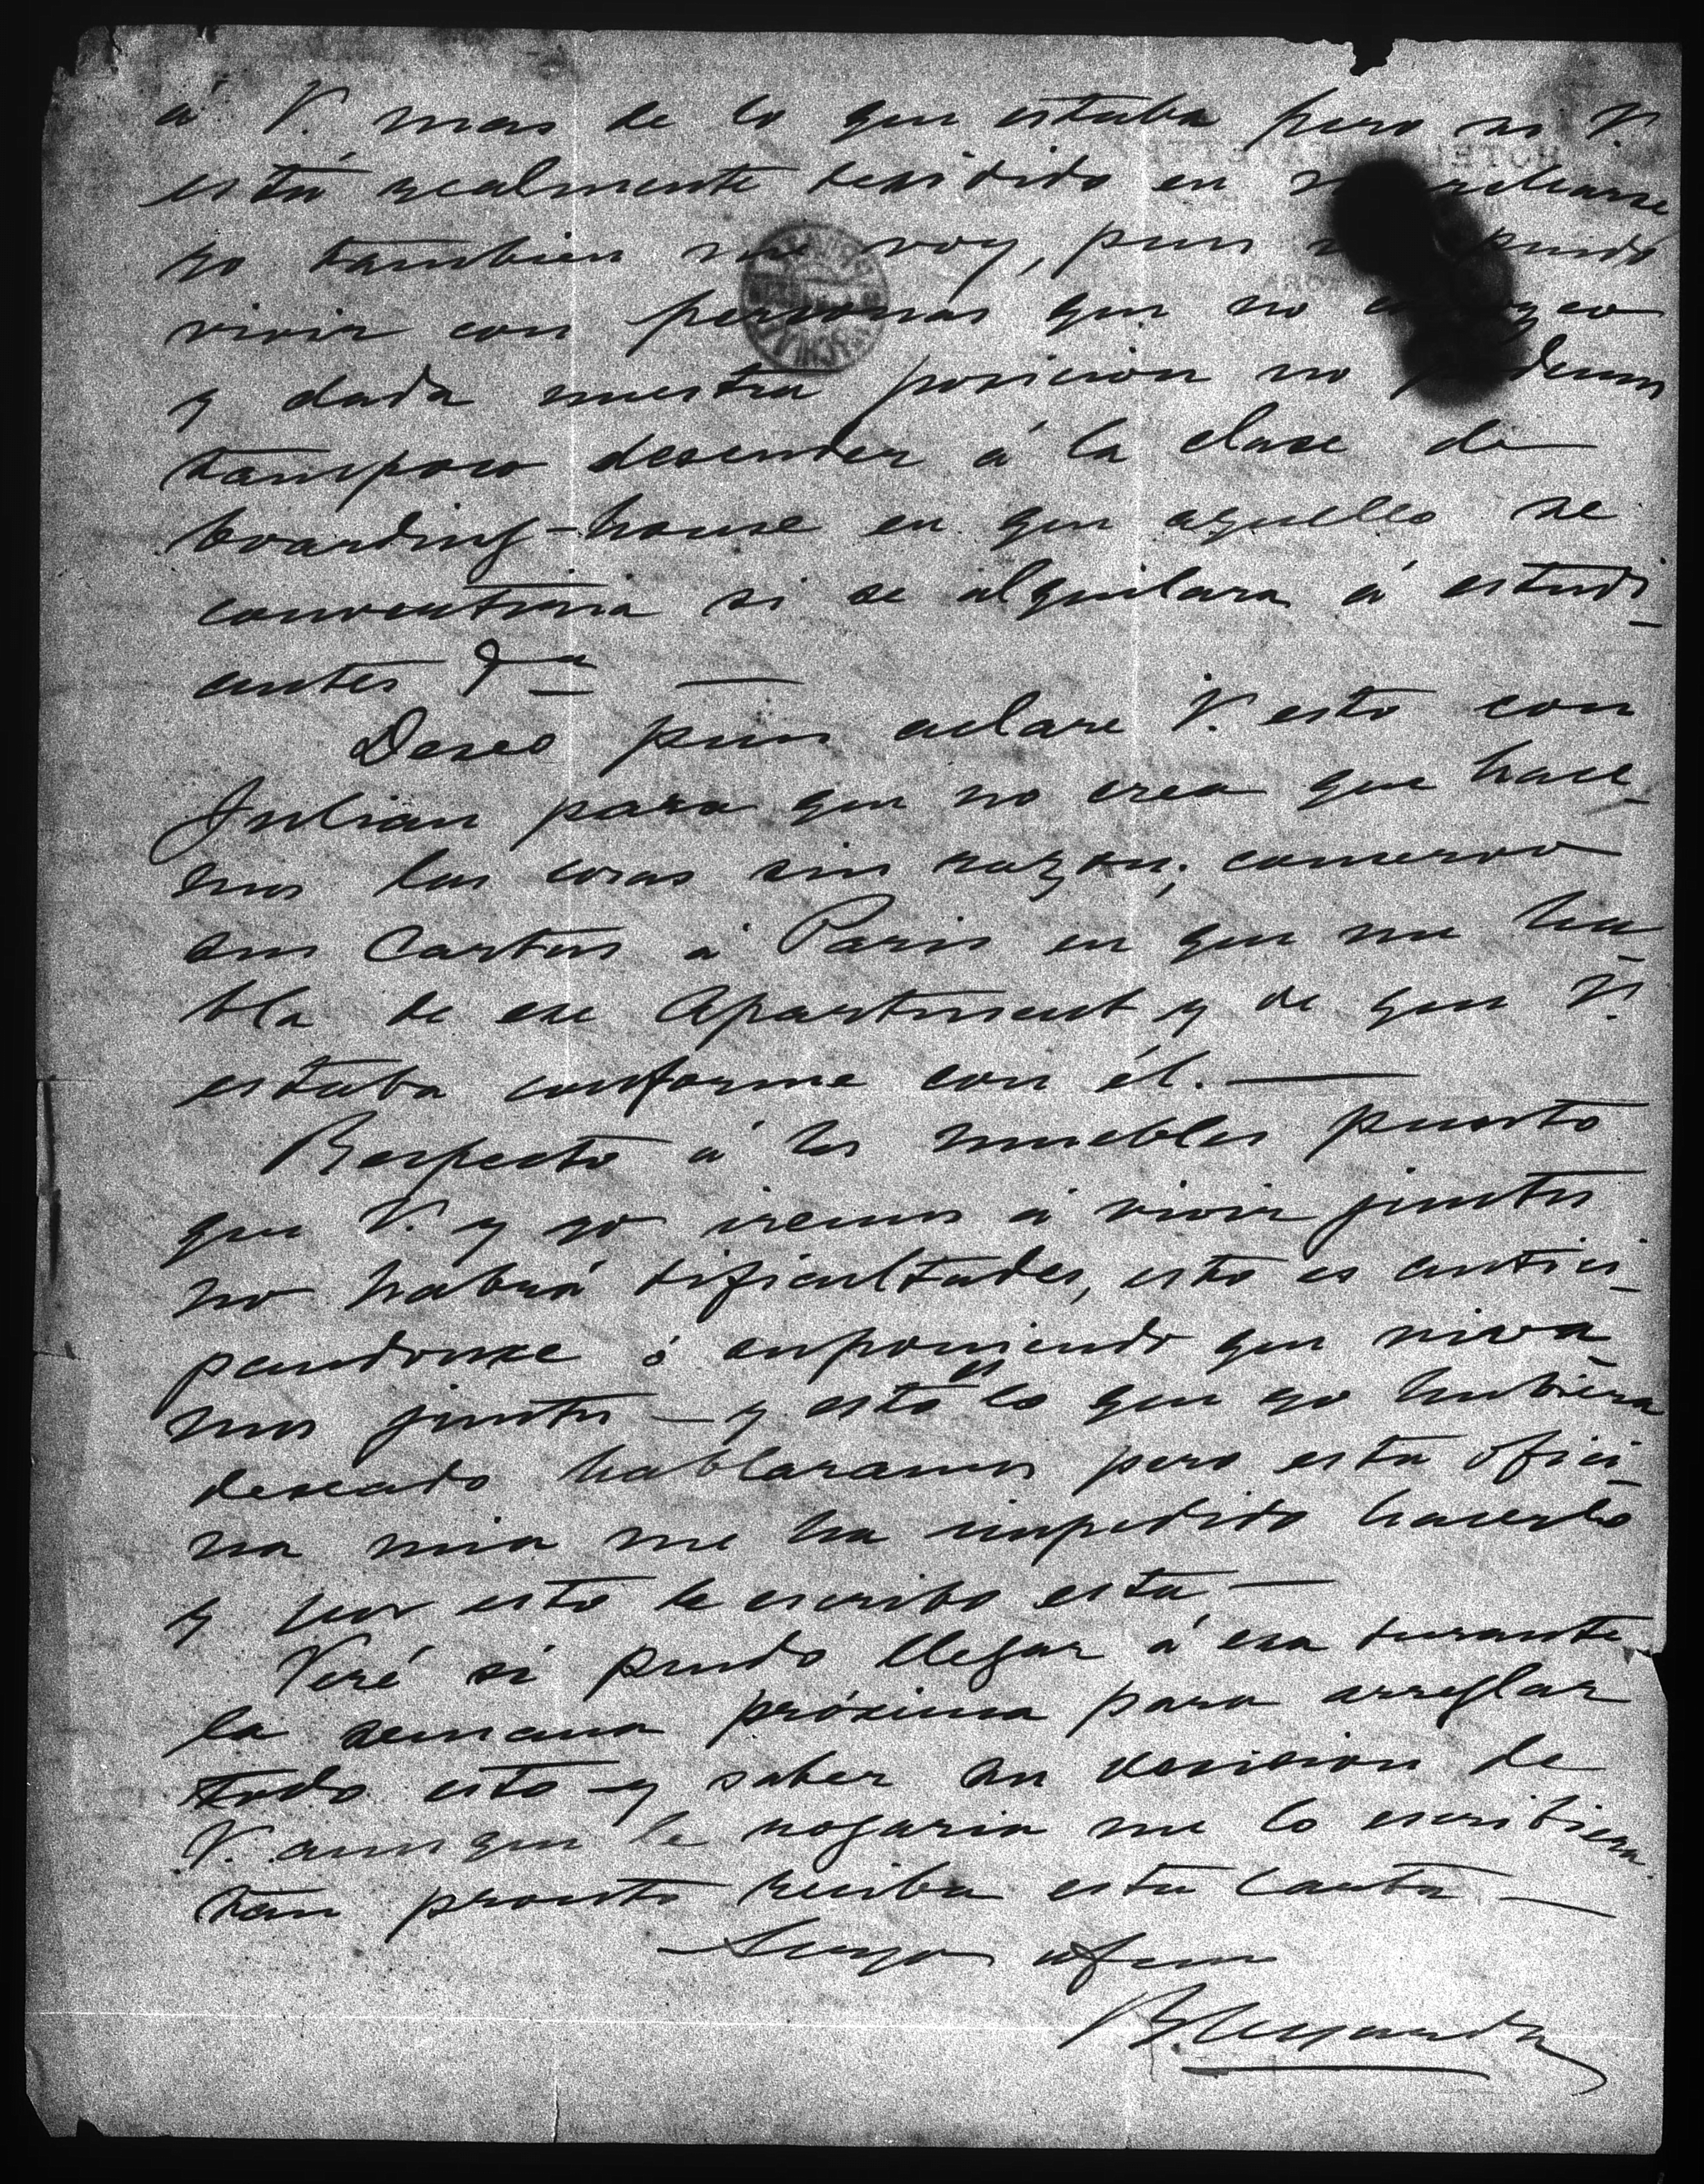 á V. mas de lo que estaba pero si V.
está realmente desidido en
yo tambien me voy, pues puedo
vivir con personas que no
y dada nuestra posicion no podemos
tampoco desender á la clase de
boarding-house en que aquello se
convertiria si se alquilara á estudi-
antes &a —
Deseo pues aclare V. esto con
Julian para que no crea que hace-
mos las cosas sin razon; conservo
sus cartas á Paris en que me ha-
bla de ese Apartment y de que V.
estaba conforme con él. —
Respecto á los muebles puesto
que V. y yo iremos á vivir juntos
no habrá dificultades, esto es antici-
pandome ó suponiendo que viva-
mos juntos — y esto es lo que yo hubiera
deseado hablaramos pero esta ofici-
na mia me ha impedido hacerlo
y por esto le escribo esta —
Veré si puedo llegar á esa durante
la semana próxima para arreglar
todo esto y saber su desision de
V. aunque le rogaria me lo escribiera
tan pronto reciba esta carta —
Suyo afmo